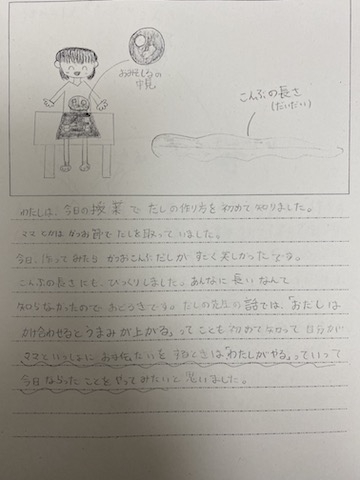 おみそしるの
中身
こんぶの長さ
(だいたい)
わたしは、今日の授業でだしの作り方を初めて知りました。
ママとかはかつお節でだしを取っていました。
今日、作ってみたらかつおこんぶだしがすごく美しかったです。
こんぶの長さにも、びっくりしました。あんなに長いなんて
知らなかったのでおどろきです。だしの先生の話では、「おだしは
かけ合わせるとうまみが上がる」ってことも初めてしって自分が
ママといっしょにお手伝いをするときは「わたしがやる」っていって
今日ならったことをやってみたいと思いました。